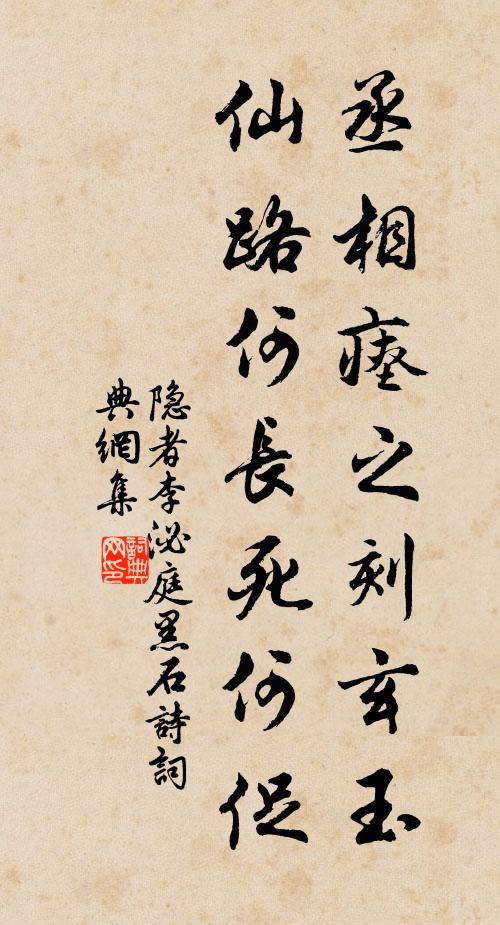 丞相瘗之刻玄玉
仙路何長死何促
隐者李泌庭黑石詩詞
典網集
詞典
网印